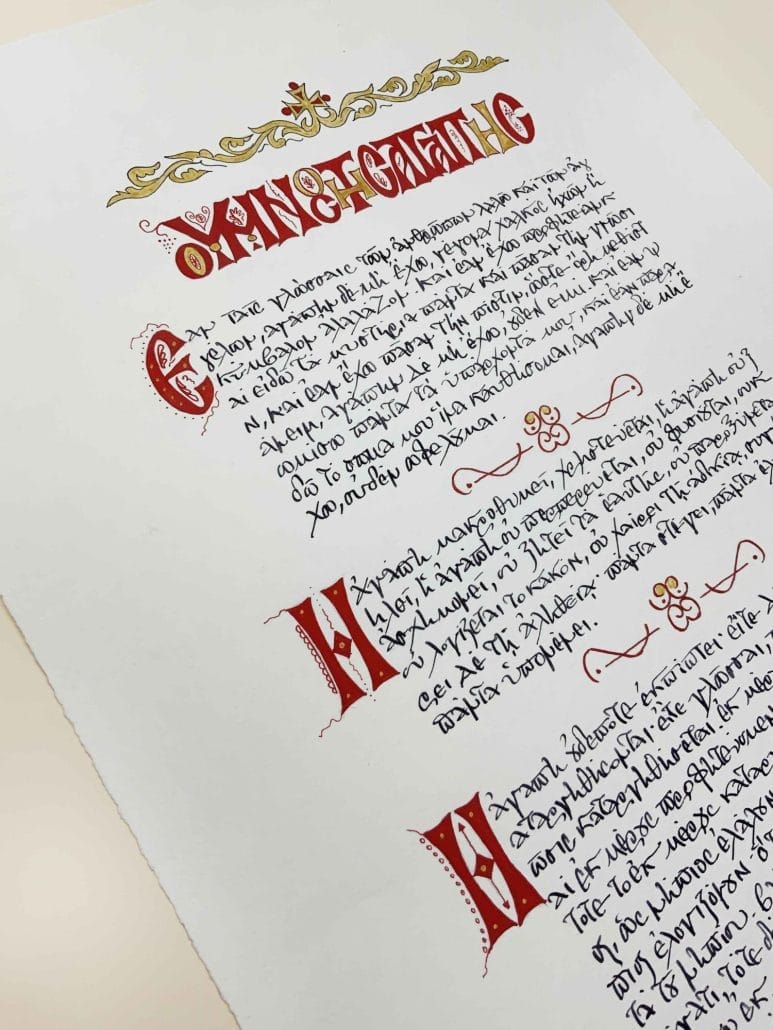 Ο ΥΜΝΟΣ ΤΗΣ ΑΓΑΠΗΣ
Ἐὰν ταῖς γλώσσαις τῶν ἀνθρώπων λαλῶ καὶ τῶν ἀγ
γέλων, ἀγάπην δὲ μὴ ἔχω, γέγονα χαλκὸς ἠχῶν ἢ
κύμβαλον ἀλαλάζον. καὶ ἐὰν ἔχω προφητείαν κ
αὶ εἰδῶ τὰ μυστήρια πάντα καὶ πᾶσαν τὴν γνῶσι
ν, καὶ ἐὰν ἔχω πᾶσαν τὴν πίστιν, ὥστε ὄρη μεθιστ
άνειν, ἀγάπην δὲ μὴ ἔχω, οὐδέν εἰμι. καὶ ἐὰν ψ
ωμίσω πάντα τὰ ὑπάρχοντά μου, καὶ ἐὰν παρα
δῶ τὸ σῶμά μου ἵνα καυθήσομαι, ἀγάπην δὲ μὴ ἔ
χω, οὐδὲν ὠφελοῦμαι.
Ἡ ἀγάπη μακροθυμεῖ, χρηστεύεται, ἡ ἀγάπη οὐ ζ
ηλοῖ, ἡ ἀγάπη οὐ περπερεύεται, οὐ φυσιοῦται, οὐκ
ἀσχημονεῖ, οὐ ζητεῖ τὰ ἑαυτῆς, οὐ παροξύνετα
οὐ λογίζεται τὸ κακόν, οὐ χαίρει τῇ ἀδικίᾳ, συγ
ρει δὲ τῇ ἀληθείᾳ· πάντα στέγει, πάντα
πάντα ὑπομένει.
Ἡ ἀγάπη οὐδέποτε ἐκπίπτει· εἴτε
αταργηθήσονται· εἴτε γλῶσσαι,
ῶσις καταργηθήσεται. ἐκ μέρ
αὶ ἐκ μέρους προφητεύομεν
τότε τὸ ἐκ μέρους καταρ
η, ὡς νήπιος ἐλάλου
πιος ἐλογιζόμην· ὅτ
τὰ τοῦ νηπίου. βλ
γματι, τότε δὲ
ω ἐκ